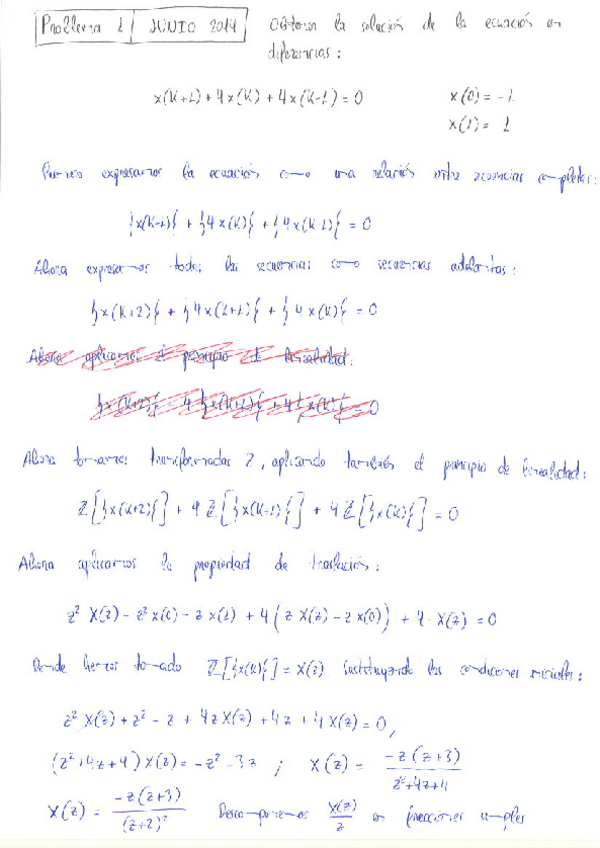 Problema 1 JUNIO 2014 Obtener la solución de la ecuación en
diferencias:
x(k+1)+4x(k)+4x(k-1)=0 x(0)=-1
x(1)=1
Primero expresamos la ecuación como una relación entre secuencias completas:
{x(k+1)}+{4x(k)}+{4x(k-1)}=0
Ahora expresamos todas las secuencias como secuencias adelantadas:
{x(k+2)}+{4x(k+1)}+{4x(k)}=0
Ahora aplicamos el principio de linealidad:
{x(k+2)}+4{x(k+1)}+4{x(k)}=0
Ahora tomamos transformadas Z, aplicando también el principio de linealidad:
Z[{x(k+2)}]+4Z[{x(k+1)}]+4Z[{x(k)}]=0
Ahora aplicamos la propiedad de traslación:
z² X(z)-z²x(0)-zx(1)+4(zX(z)-zx(0))+4·X(z)=0
Donde hemos tomado Z[{x(k)}]=X(z) sustituyendo las condiciones iniciales:
z²X(z)+z²-z+4zX(z)+4z+4X(z)=0,
(z²+4z+4)X(z)=-z²-3z ; X(z)= -z(z+3)/z²+4z+4
X(z)= -z(z+3)/(z+2)² Descomponemos X(z)/z en fracciones simples